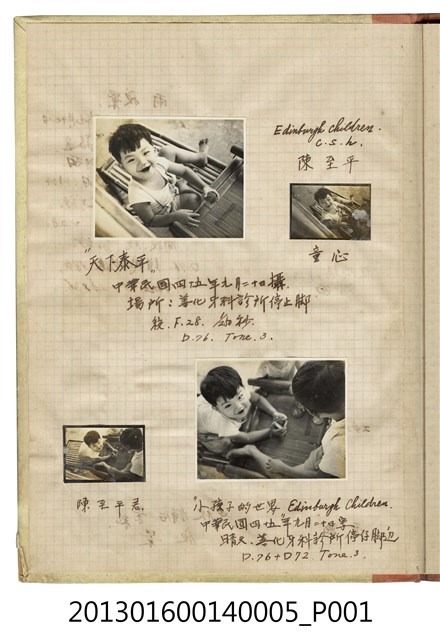 Edinburgh Children.
C.S.h.
陳至平
童心
"天下泰平"
中華民國四十五年元月二十日攝
場所:善化牙科診所停止脚
F.28.
D.76. Tone.3.
陳至平君
"小孩子的世界 Edinburgh Children.
中華民國四十五年元月二十日
晴天.善化牙科診所停仔脚边
D.76+D72 Tone.3.
201301600140005_P001